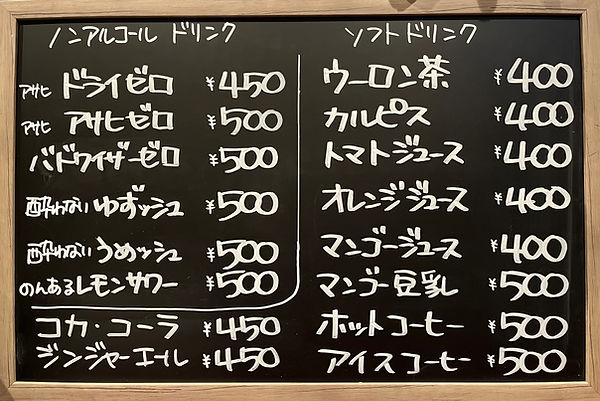 ノンアルコール ドリンク
アサヒ ドライゼロ ¥450
アサヒ アサヒゼロ ¥500
バドワイザーゼロ ¥500
酔わないゆずッシュ ¥500
酔わないうめッシュ ¥500
のんあるレモンサワー ¥500
コカ・コーラ ¥450
ジンジャーエール ¥450
ソフトドリンク
ウーロン茶 ¥400
カルピス ¥400
トマトジュース ¥400
オレンジジュース ¥400
マンゴージュース ¥400
マンゴー豆乳 ¥500
ホットコーヒー ¥500
アイスコーヒー ¥500